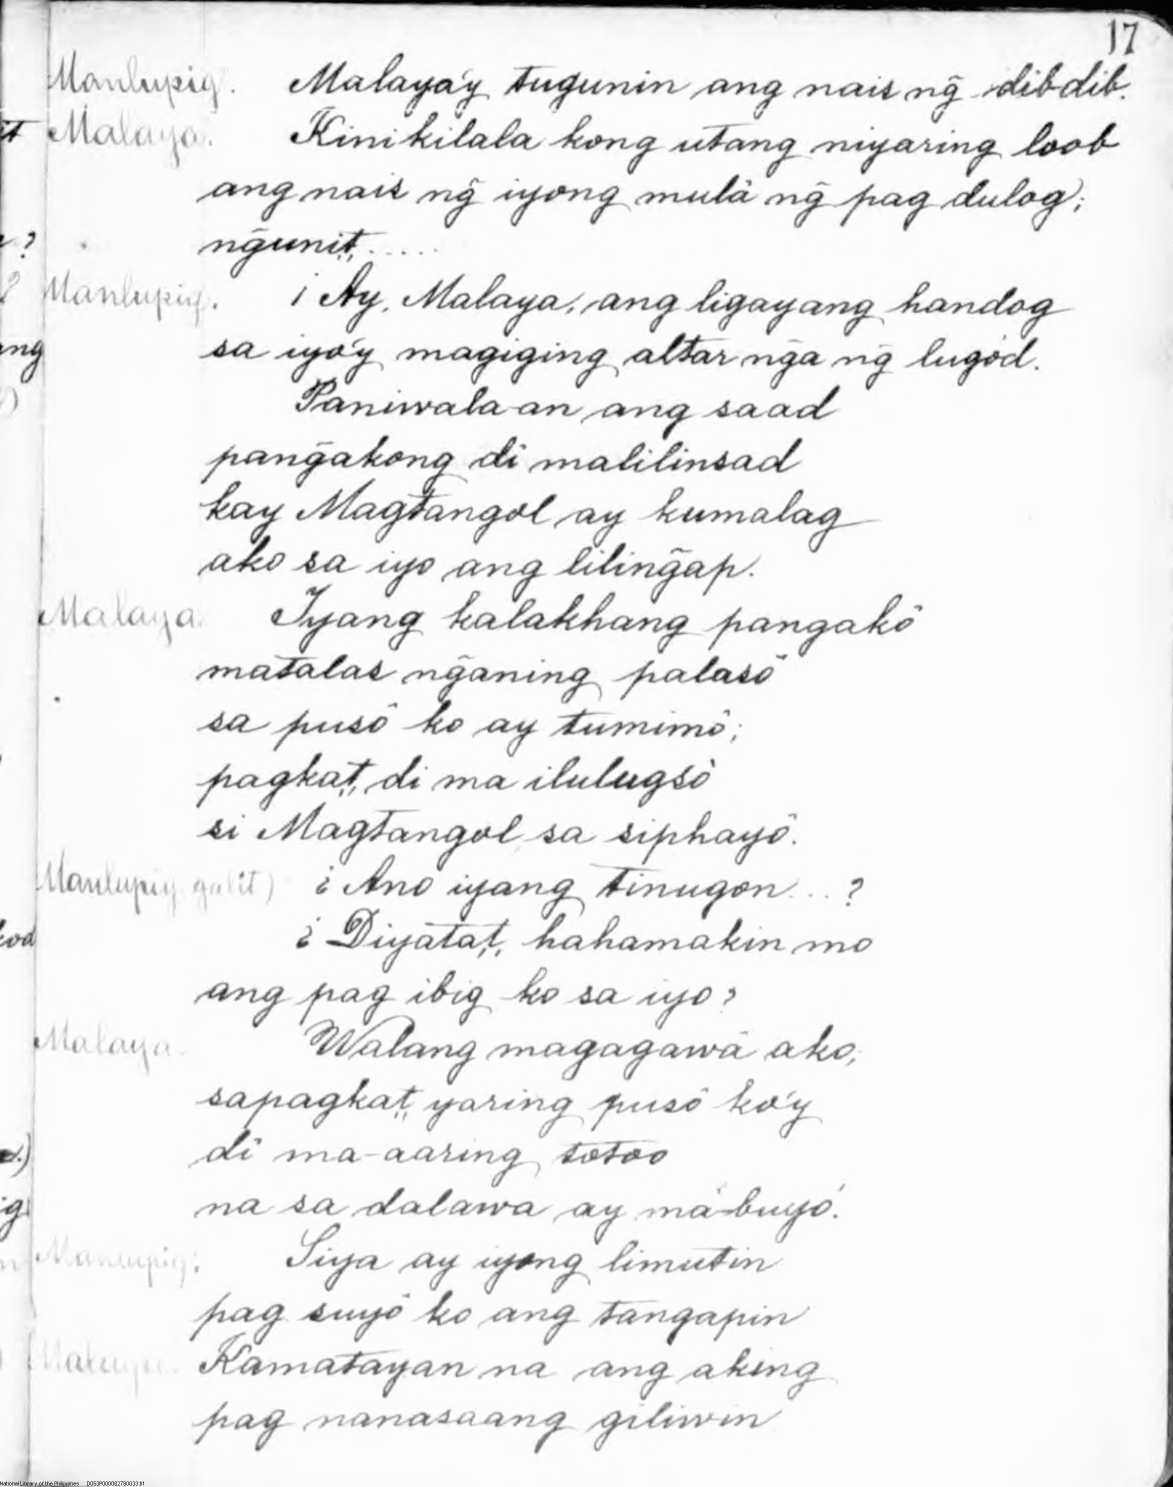 17
Manlupig. Malaya'y tugunin ang nais ng̃ dibdib.
Malaya. Kinikilala kong utang niyaring loob
ang nais ng̃ iyong mulâ ng̃ pag dulog;
ng̃unit, .....
Manlupig. ¡Ay, Malaya, ang ligayang handog
sa iyo'y magiging altar ng̃a ng̃ lugód.
Paniwala-an ang saad
pang̃akong di malilinsad
kay Magtangol ay kumalag
ako sa iyo ang liling̃ap.
Malaya. Iyang kalakhang pangakô
matalas ng̃aning palasô
sa pusô ko ay tumimô;
pagkat, di ma ilulugsô
si Magtangol sa siphayô.
Manlupig galit) ¿Ano iyang tinugon...?
¿Diyatat, hahamakin mo
ang pag ibig ko sa iyo?
Malaya. Walang magagawâ ako,
sapagkat, yaring pusô ko'y
di ma-aaring totoo
na sa dalawa ay má-buyó.
Manlupig: Siya ay iyong limutin
pag suyò ko ang tangapin
Malaya. Kamatayan na ang aking
pag nanasaang giliwin
National Library of the Philippines